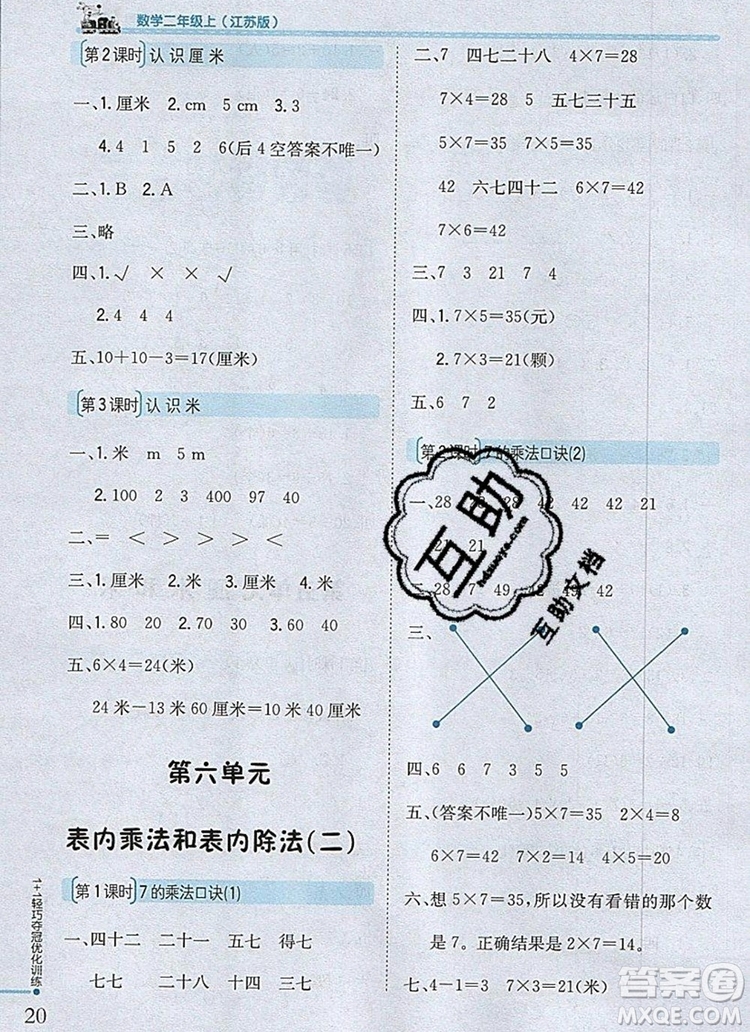 数学二年级上(江苏版)
第2课时 认识厘米
一、1.厘米 2.cm 5 cm 3.3
4.4 1 5 2 6(后4空答案不唯一)
二、1.B 2.A
三、略
四、1.√ × × √
2.4 4 4 4
五、10+10-3=17(厘米)
第3课时 认识米
一、1.米 m 5 m
2.100 2 400 900 97 40
二、= < > < > >
三、1.厘米 2.米 厘米 3.厘米
四、1.80 2.20 90 3.70 30
五、6×4=24(米)
24米-13米60厘米=10米40厘米
第六单元
表内乘法和表内除法(二)
第1课时 7的乘法口诀(1)
一、四十二 二十一 五七 得七
七七 二十八 十四 三七
二、7 四七二十八 4×7=28
7×4=28 5 五七三十五
5×7=35 7×5=35
42 六七四十二 6×7=42
7×6=42
三、7 3 21 7 4
四、1.7×5=35(元)
2.7×3=21(颗)
五、6 7 2
第2课时 7的乘法口诀(2)
一、28 28 42 42 21
21 21
28 7 49 42
三、
四、6 6 7 3 5 7
五、(答案不唯一)5×7=35 2×4=8
6×7=42 7×2=14
六、6×7=42 42=35+7,所以没有看错的那个数
是7。正确结果是2×7=14。
七、4-1=3 7×3=21(米)
1+1轻巧夺冠优化训练
20
互助
hdzuoye.com
互助文档
答案圈
MXQE.COM
答案圈
MXQE.COM